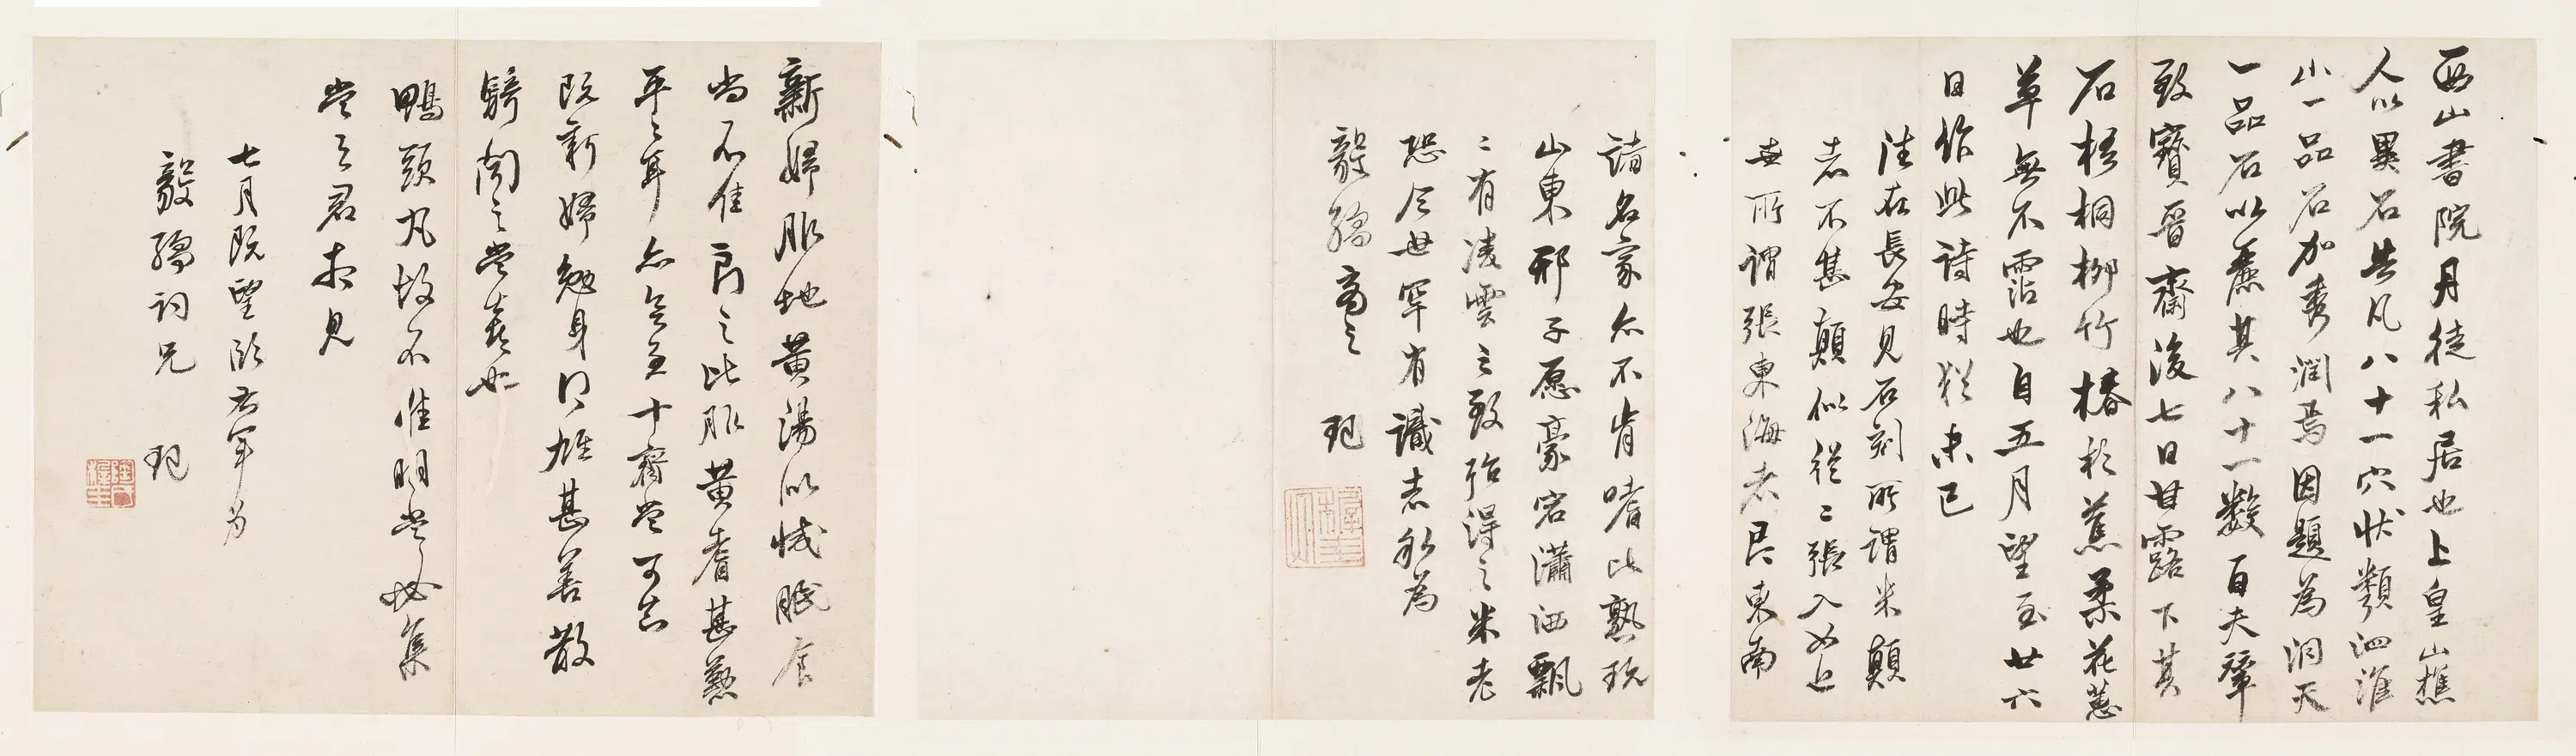 西山書院丹徒私居也上皇山樵
人以異石告凡八十一穴狀類泗淮
山一品石加秀潤焉因題為洞天
一品石以麗其八十一數百夫輦
致寶晉齋後七日甘露下其
石梧桐柳竹椿杉蕉柔花蕙
草無不霑也自五月望至廿六
日作此詩時猶未已
往在長安見石刻所謂米顛
者不甚顛似從二張入如近
世所謂張東海者耳東南
諸名家亦不肯嗜此熟玩
山東邢子愿豪宕瀟洒飄
飄有凌雲之致殆得之米老
恐今世罕有識者私為
毅孺商之 玭
新婦服地黃湯似減眠食
尚不佳
此服黃耆甚懃
平平耳亦無至十齋當可知
既新婦勉身得雄甚善散
騎聞之當喜也
鴨頭丸故不佳明當必集
當與君相見
七月既望
毅孺詞兄 玭